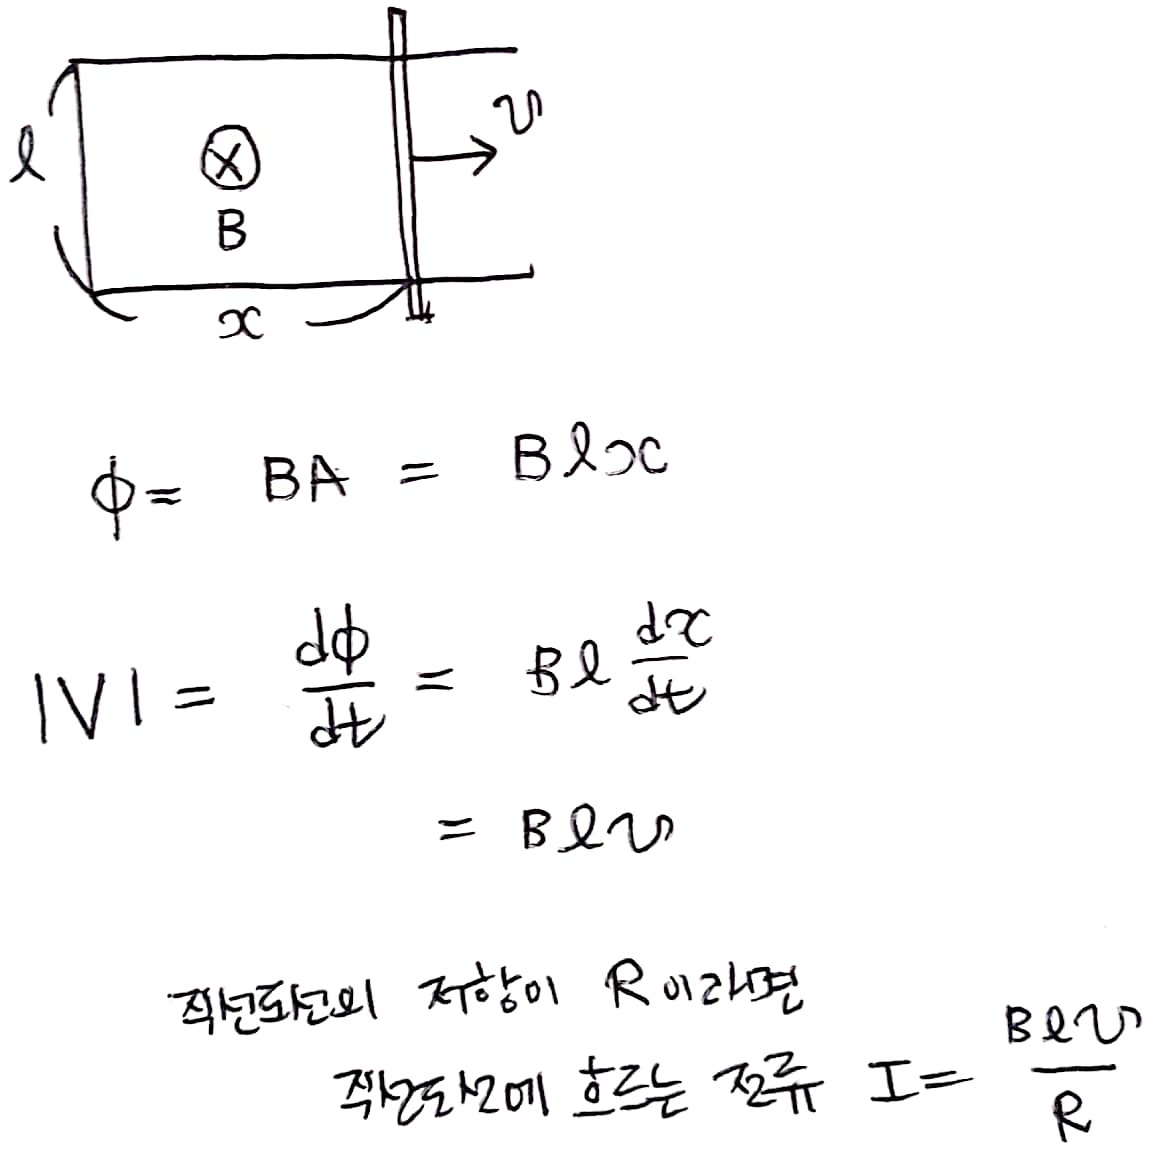 v
l
⊗
B
x
ϕ = BA = Blx
|V| = dϕ/dt = Bl dx/dt
= Blv
직선도선의 저항이 R이라면
직선도선에 흐르는 전류 I = Blv/R